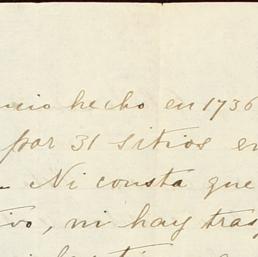 ncio hecho en 1736
por 31 sitios en
Ni consta que
tivo, ni hay tras